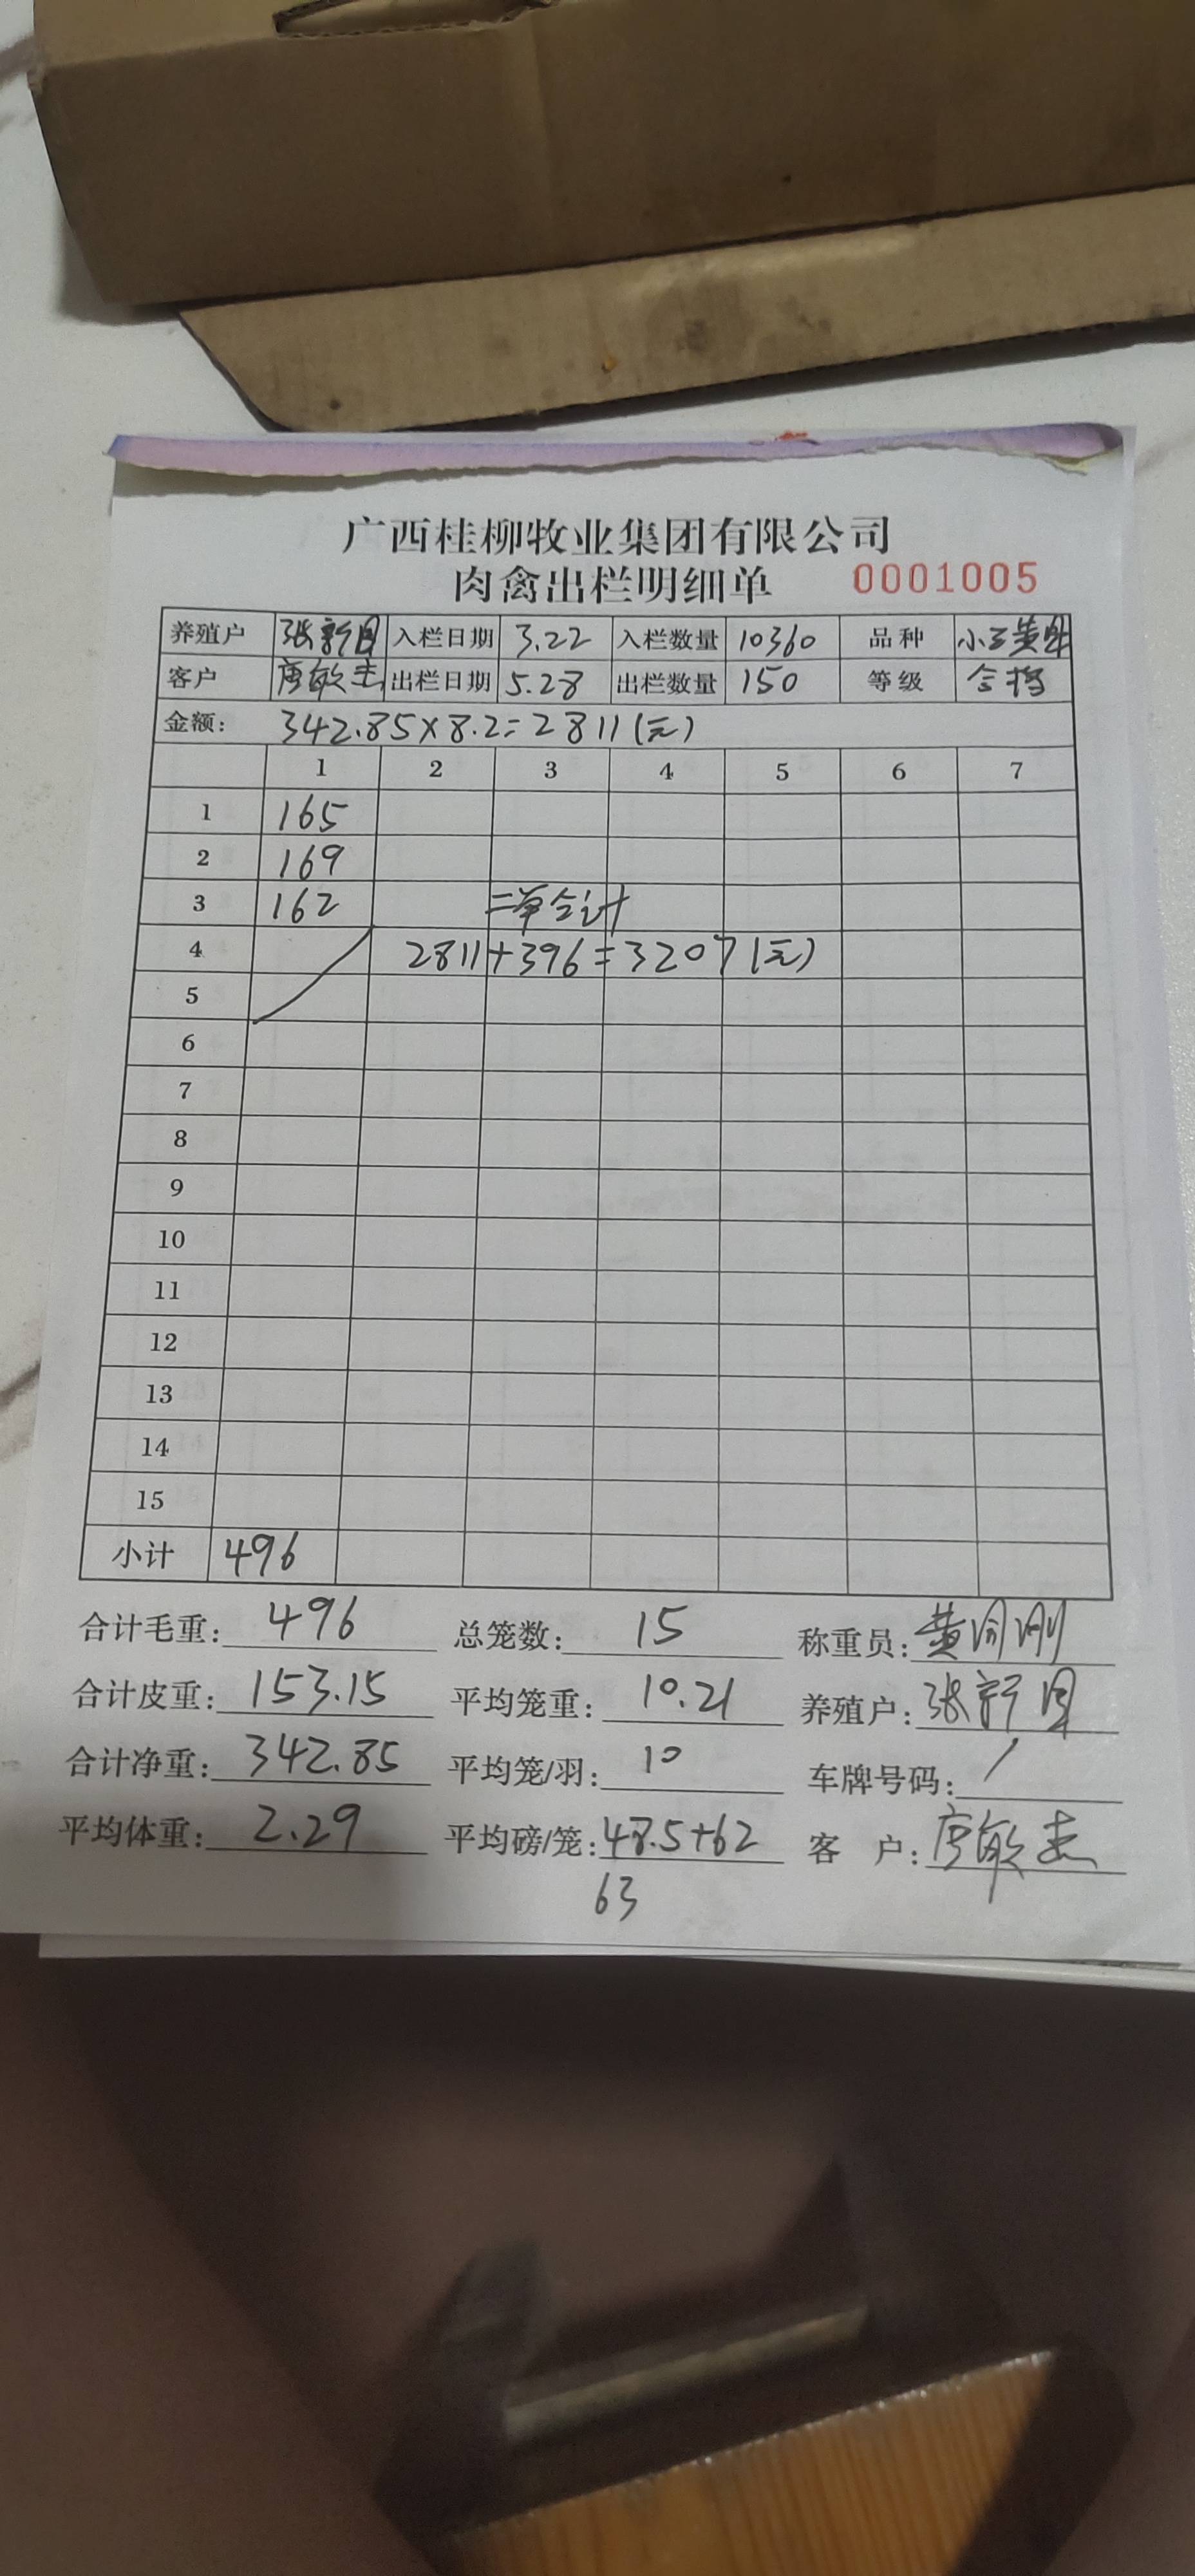 广西桂柳牧业集团有限公司
肉禽出栏明细单 0001005
养殖户 张新国 入栏日期 3.22 入栏数量 10360 品种 小三黄
客户 唐敏志 出栏日期 5.28 出栏数量 150 等级 合格
金额: 342.85×8.2=2811(元)
1 2 3 4 5 6 7
1 165
2 169
3 162 二单合计
4 2811+396=3207(元)
5
6
7
8
9
10
11
12
13
14
15
小计 496
合计毛重: 496 总笼数: 15 称重员: 黄刚
合计皮重: 153.15 平均笼重: 10.21 养殖户: 张新国
合计净重: 342.85 平均笼/羽: 10 车牌号码: /
平均体重: 2.29 平均磅/笼: 48.5+62 客户: 唐敏志
63